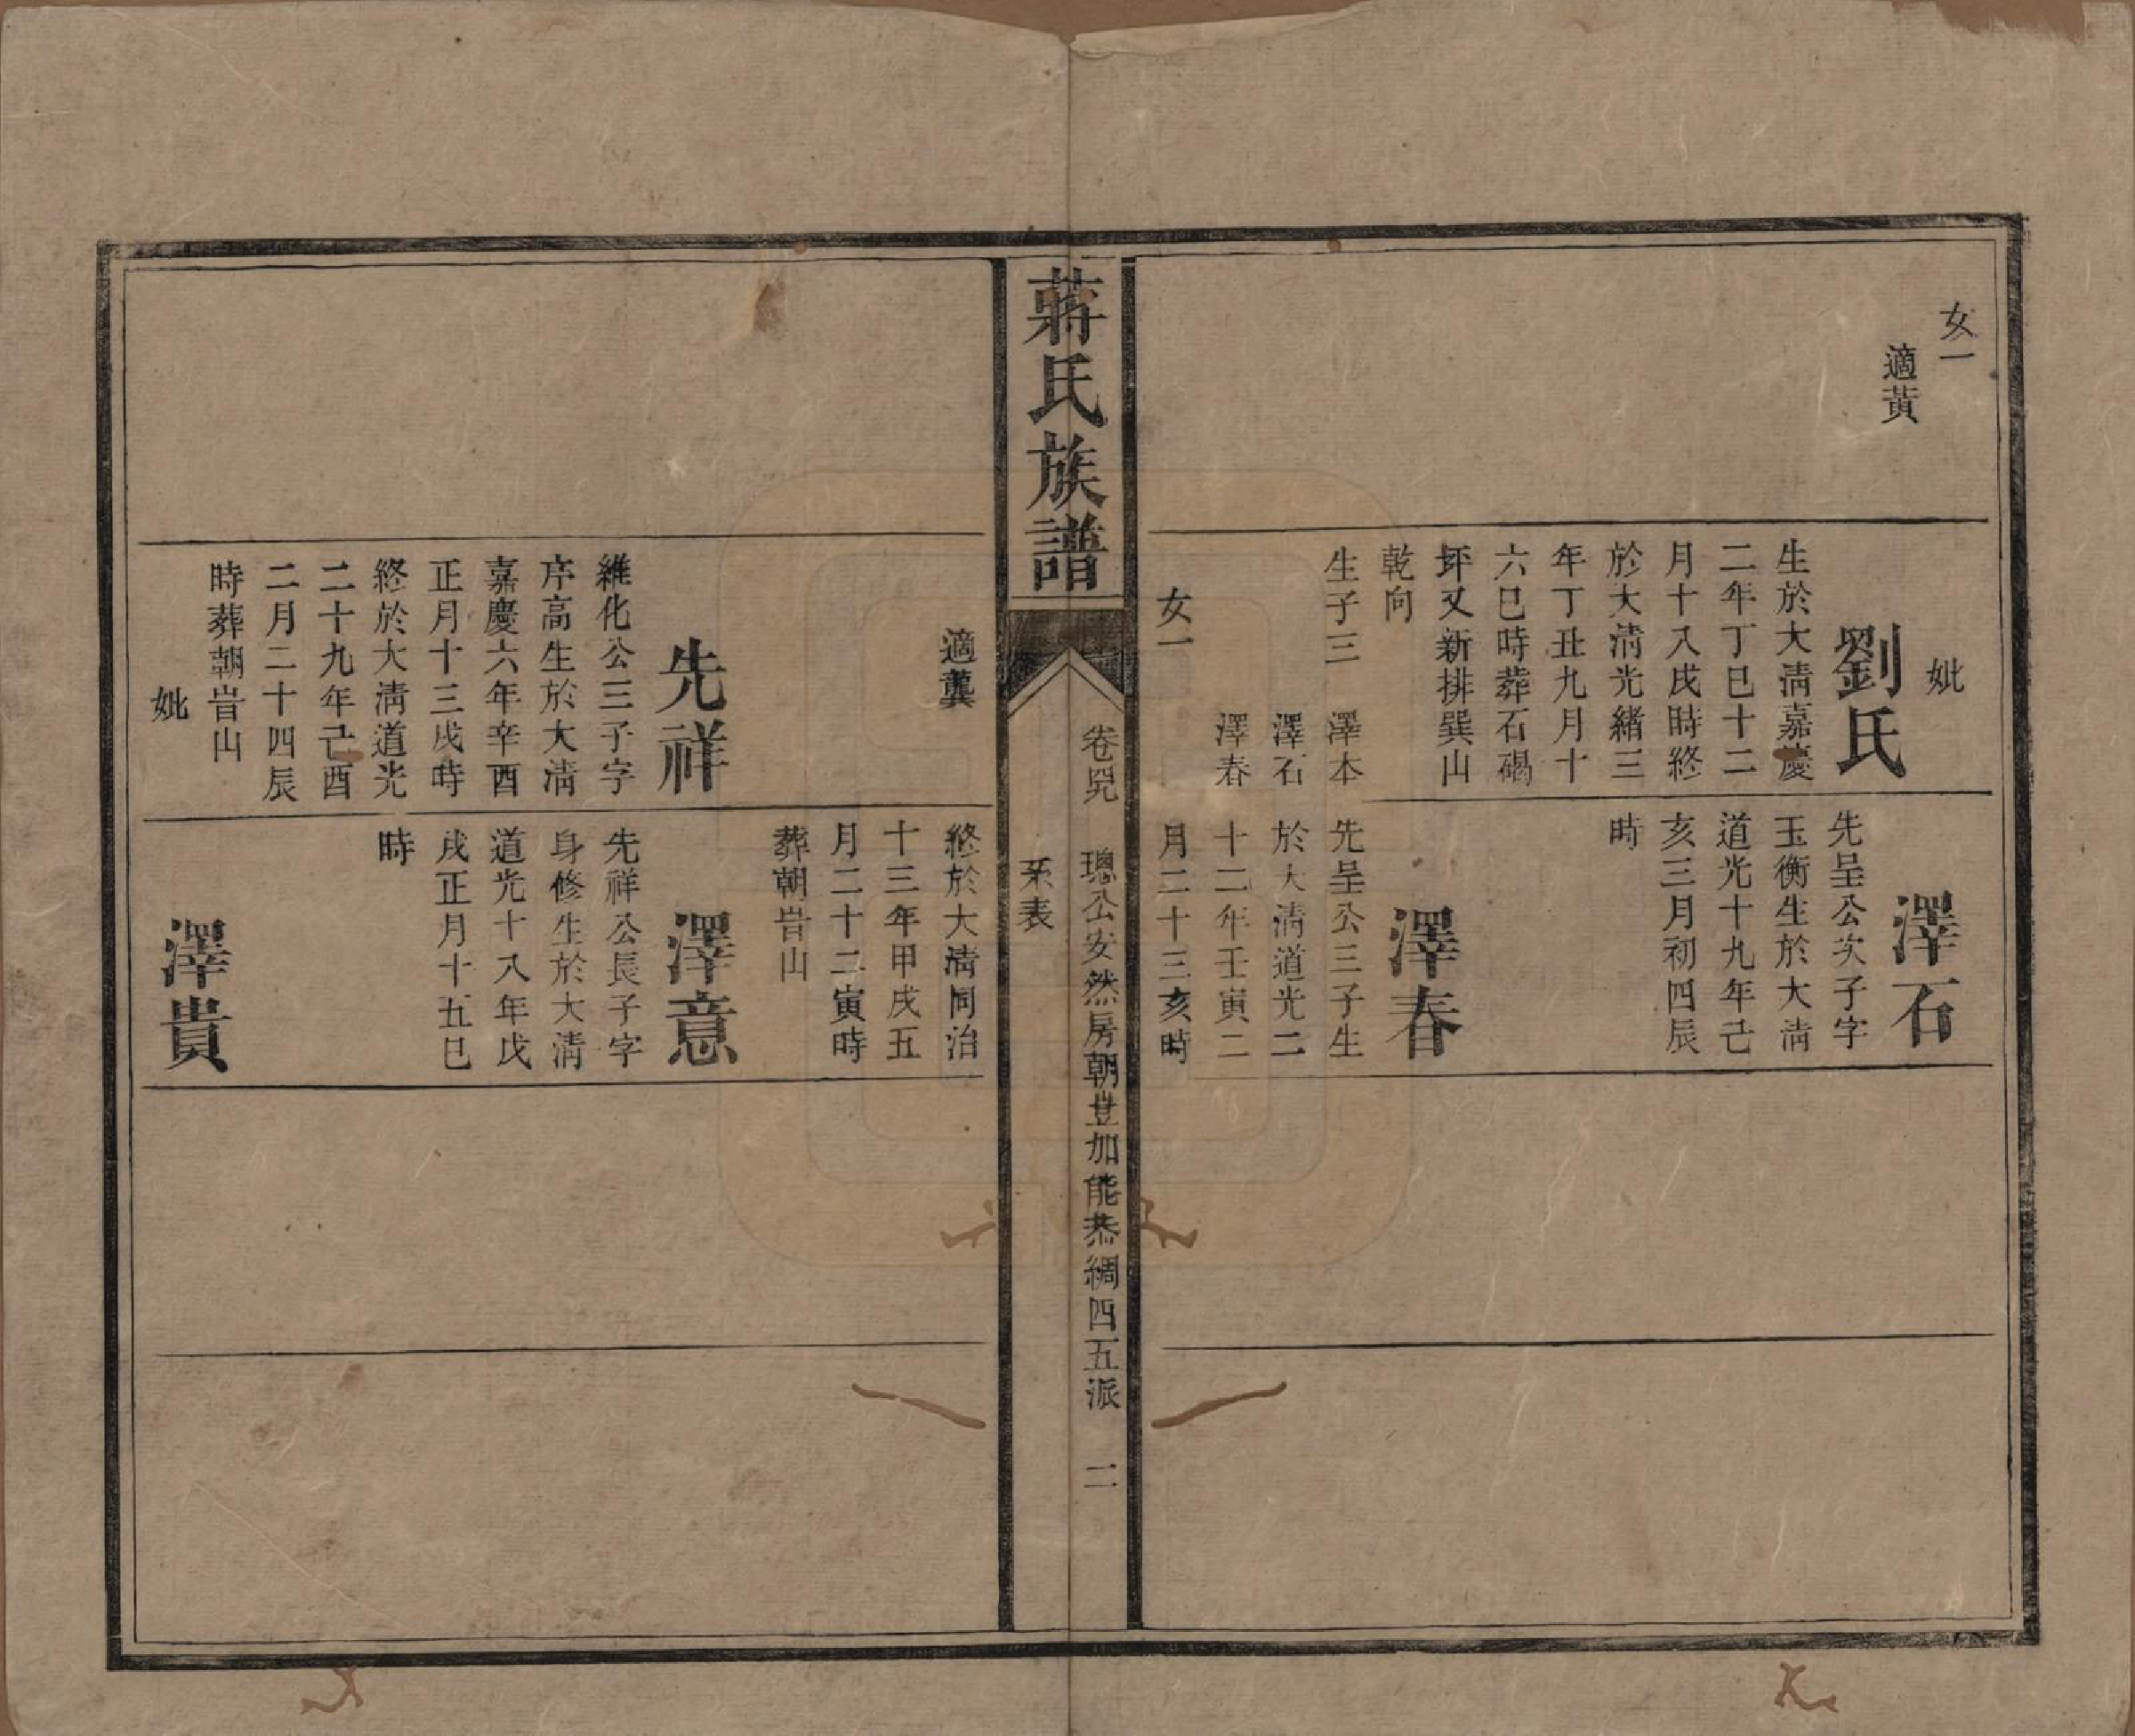 女一
適黃
妣
劉氏
生於大淸嘉慶
二年丁巳十二
月十八戌時終
於大淸光緒三
年丁丑九月十
六巳時葬石碣
坪又新排巽山
乾向
生子三　澤本
澤石
澤春
女一
澤石
先呈公次子字
玉衡生於大淸
道光十九年己
亥三月初四辰
時
澤春
先呈公三子生
於大淸道光二
十二年壬寅二
月二十三亥時
蔣氏族譜
卷　璁公安然房朝豈加能恭綢四五派　二
系表
適龔
先祥
維化公三子字
序高生於大淸
嘉慶六年辛酉
正月十三戌時
終於大淸道光
二十九年己酉
二月二十四辰
時葬朝岩山
妣
終於大淸同治
十三年甲戌五
月二十二寅時
葬朝岩山
澤意
先祥公長子字
身修生於大淸
道光十八年戊
戌正月十五巳
時
澤貴